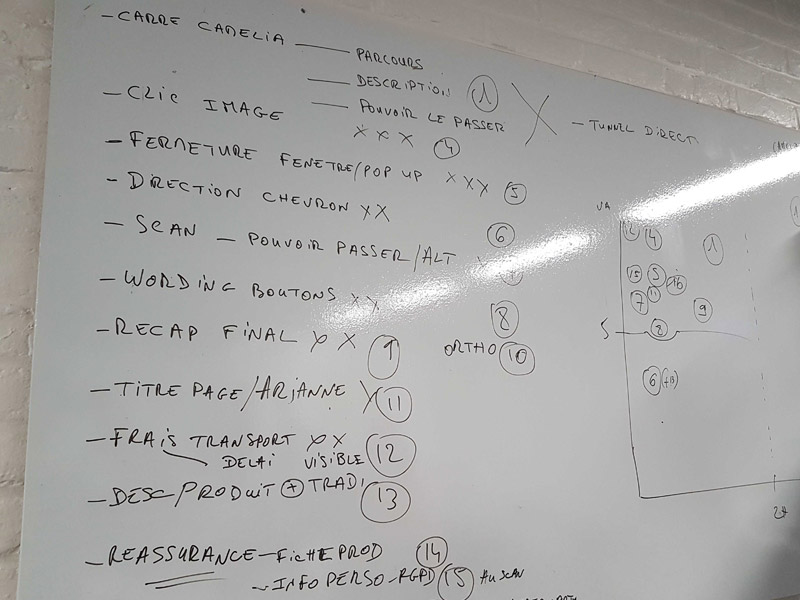 - CARRE CAMELIA — PARCOURS
— DESCRIPTION ①
- CLIC IMAGE — POUVOIR LE PASSER X
X X X ④
- TUNNEL DIRECT
- FERMETURE FENETRE/POP UP X X X ⑤
- DIRECTION CHEVRON X X
⑥
- SCAN - POUVOIR PASSER/ALT
- WORDING BOUTONS X X
⑧
- RECAP FINAL X X ⑨
ORTHO ⑩
- TITRE PAGE/ARIANNE X ⑪
- FRAIS TRANSPORT X X ⑫
DELAI VISIBLE
- DESC/PRODUIT + TRADI ⑬
- REASSURANCE - FICHE PROD ⑭
- INFO PERSO - RGPD ⑮ AU SCAN
VA
12 4 1
15 5 16
7 11 9
5 8
6